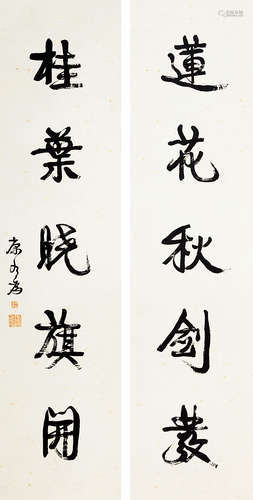 蓮花秋劍發
桂葉曉旗開
康有為